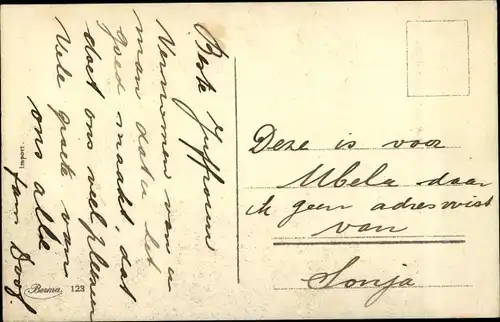 Beste Juffrouw
Vernomen van u
man dat u het
goed maakt, dat
doet ons veel plezier
Vele groete van
ons alle
fam Doog.
Deze is voor
Mbela daar
ik geen adres wist
van
Sonja
Import.
Berma 123